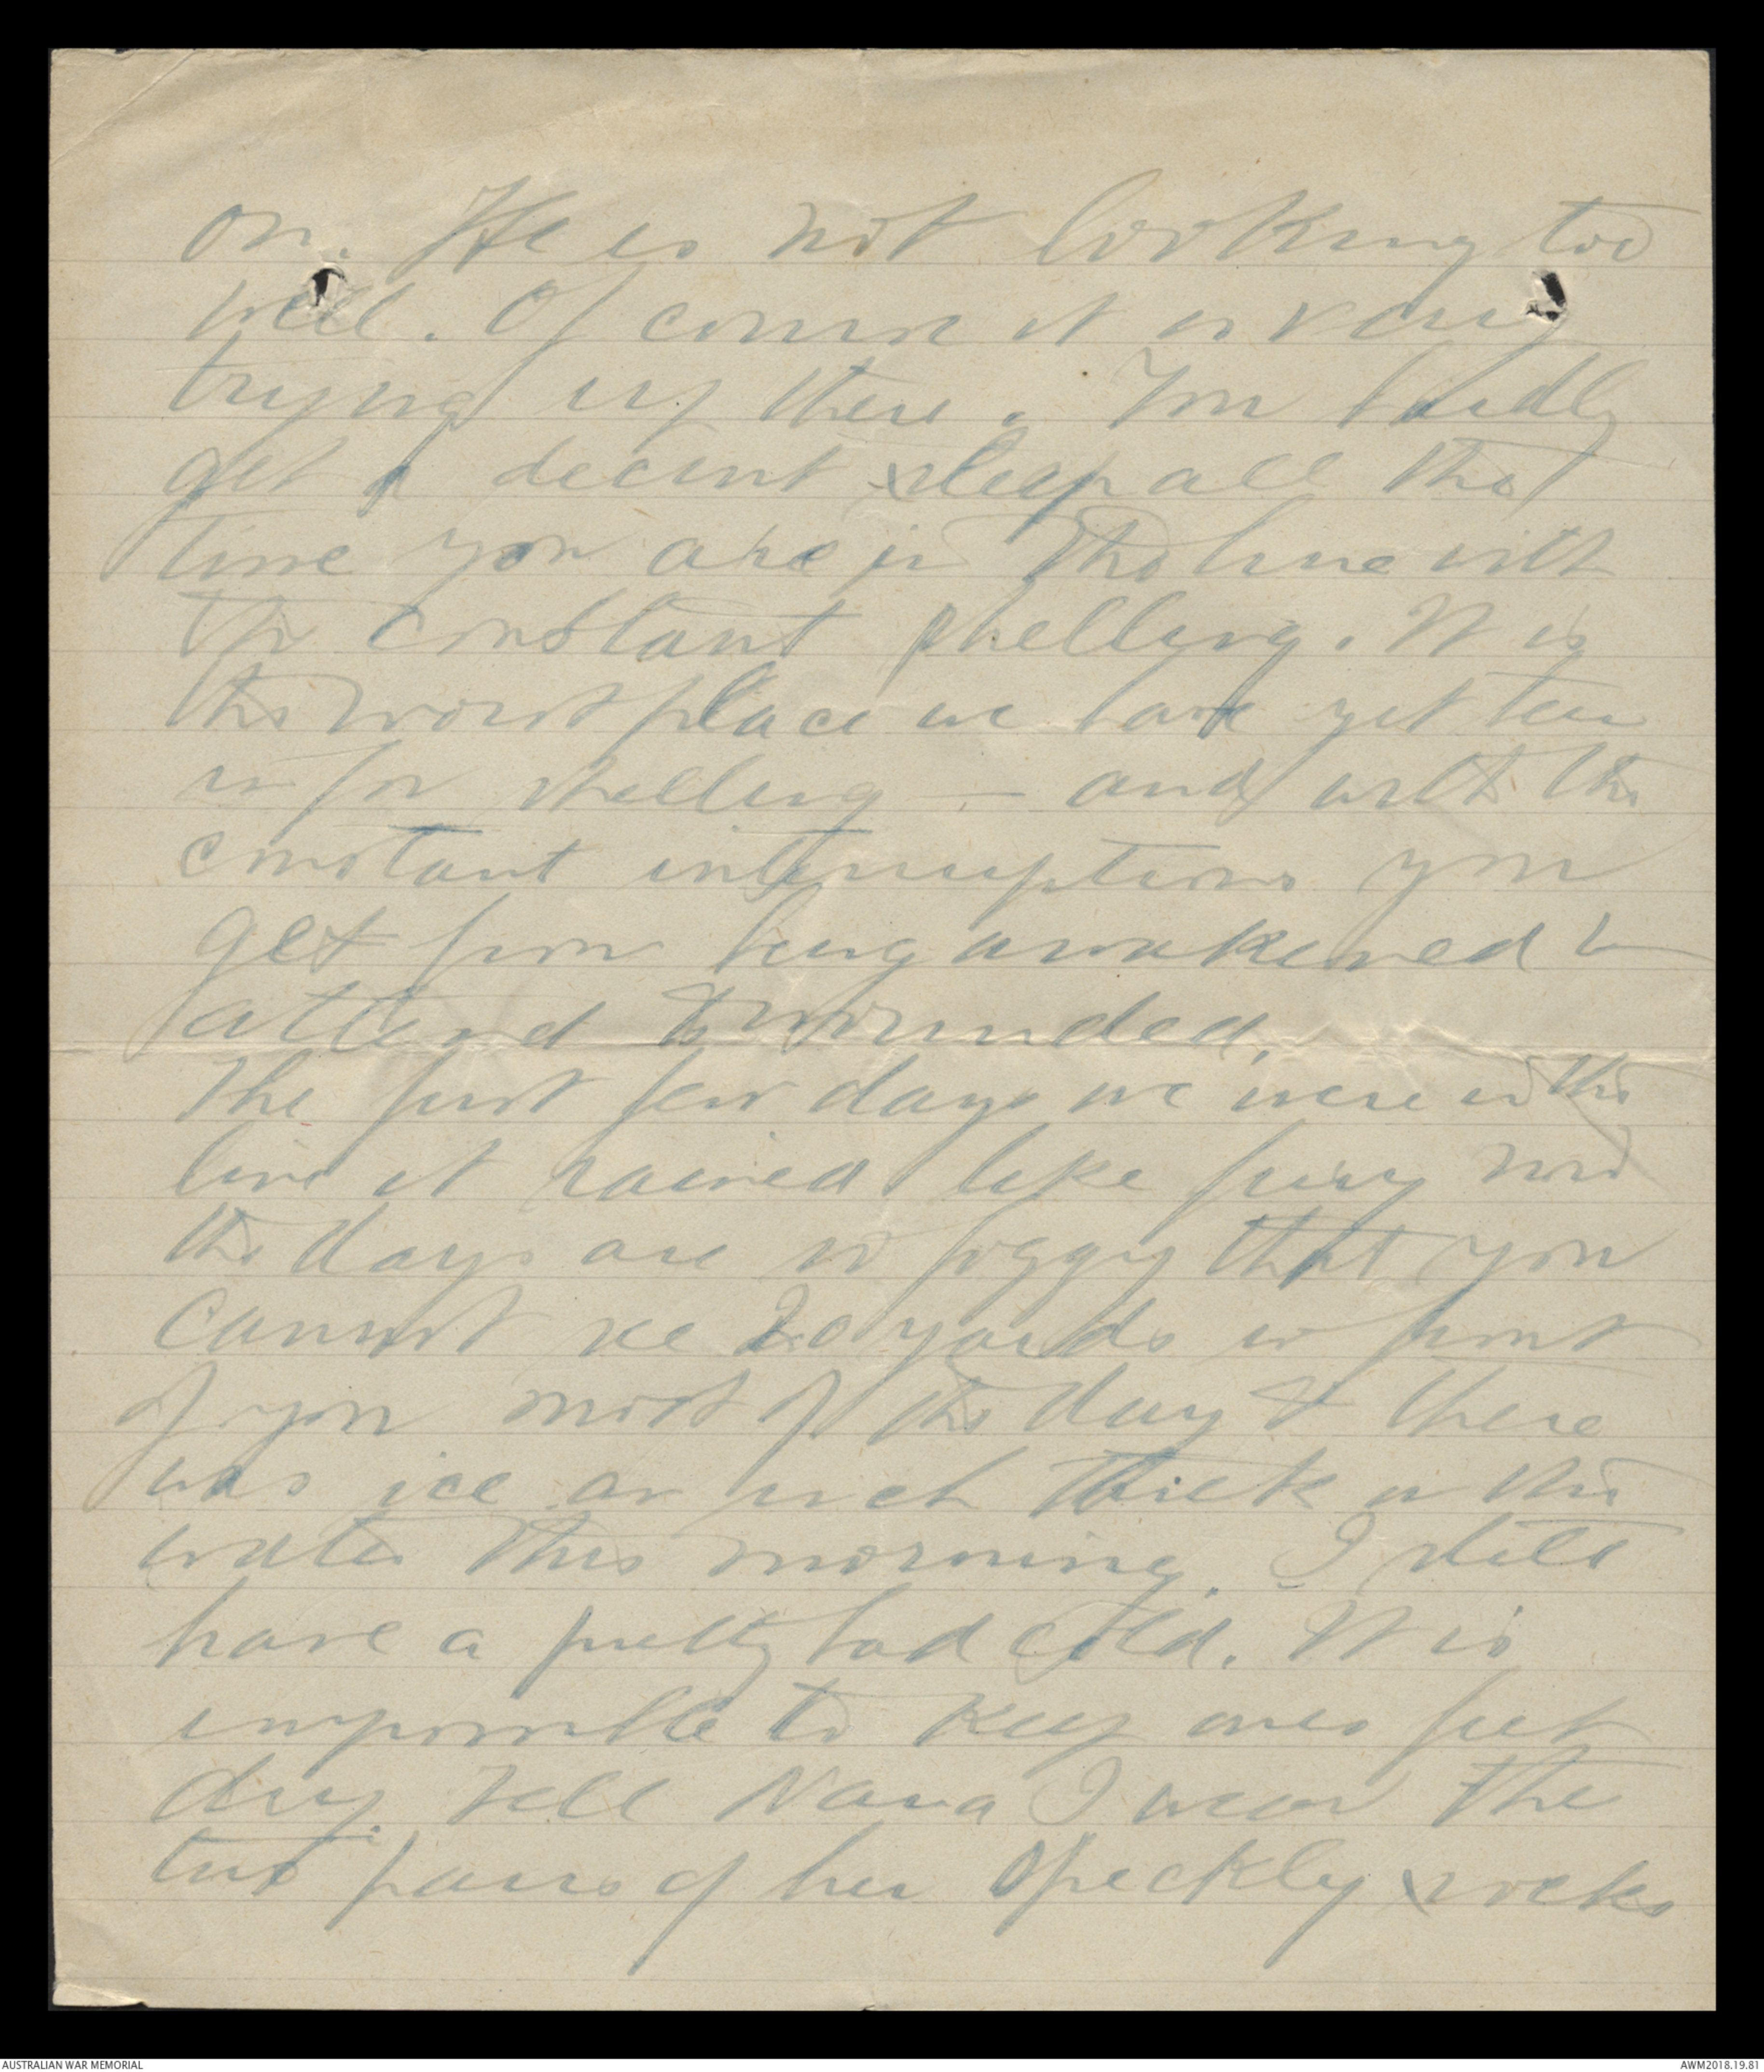 on. He is not looking too
well. Of course it is very
trying up there. You hardly
get a decent sleep all the
time you are in the line with
the constant shelling. It is
the worst place we have yet been
in for shelling — and with the
constant interruptions you
get from being awakened to
attend to wounded.
The first few days we were in the
line it rained like fury now
the days are so foggy that you
cannot see 20 yards in front
of you most of the day & there
was ice an inch thick in the
water this morning. I still
have a pretty bad cold. It is
impossible to keep ones feet
dry. Tell Nana I wear the
two pairs of her speckly socks
AUSTRALIAN WAR MEMORIAL
AWM2018.19.81